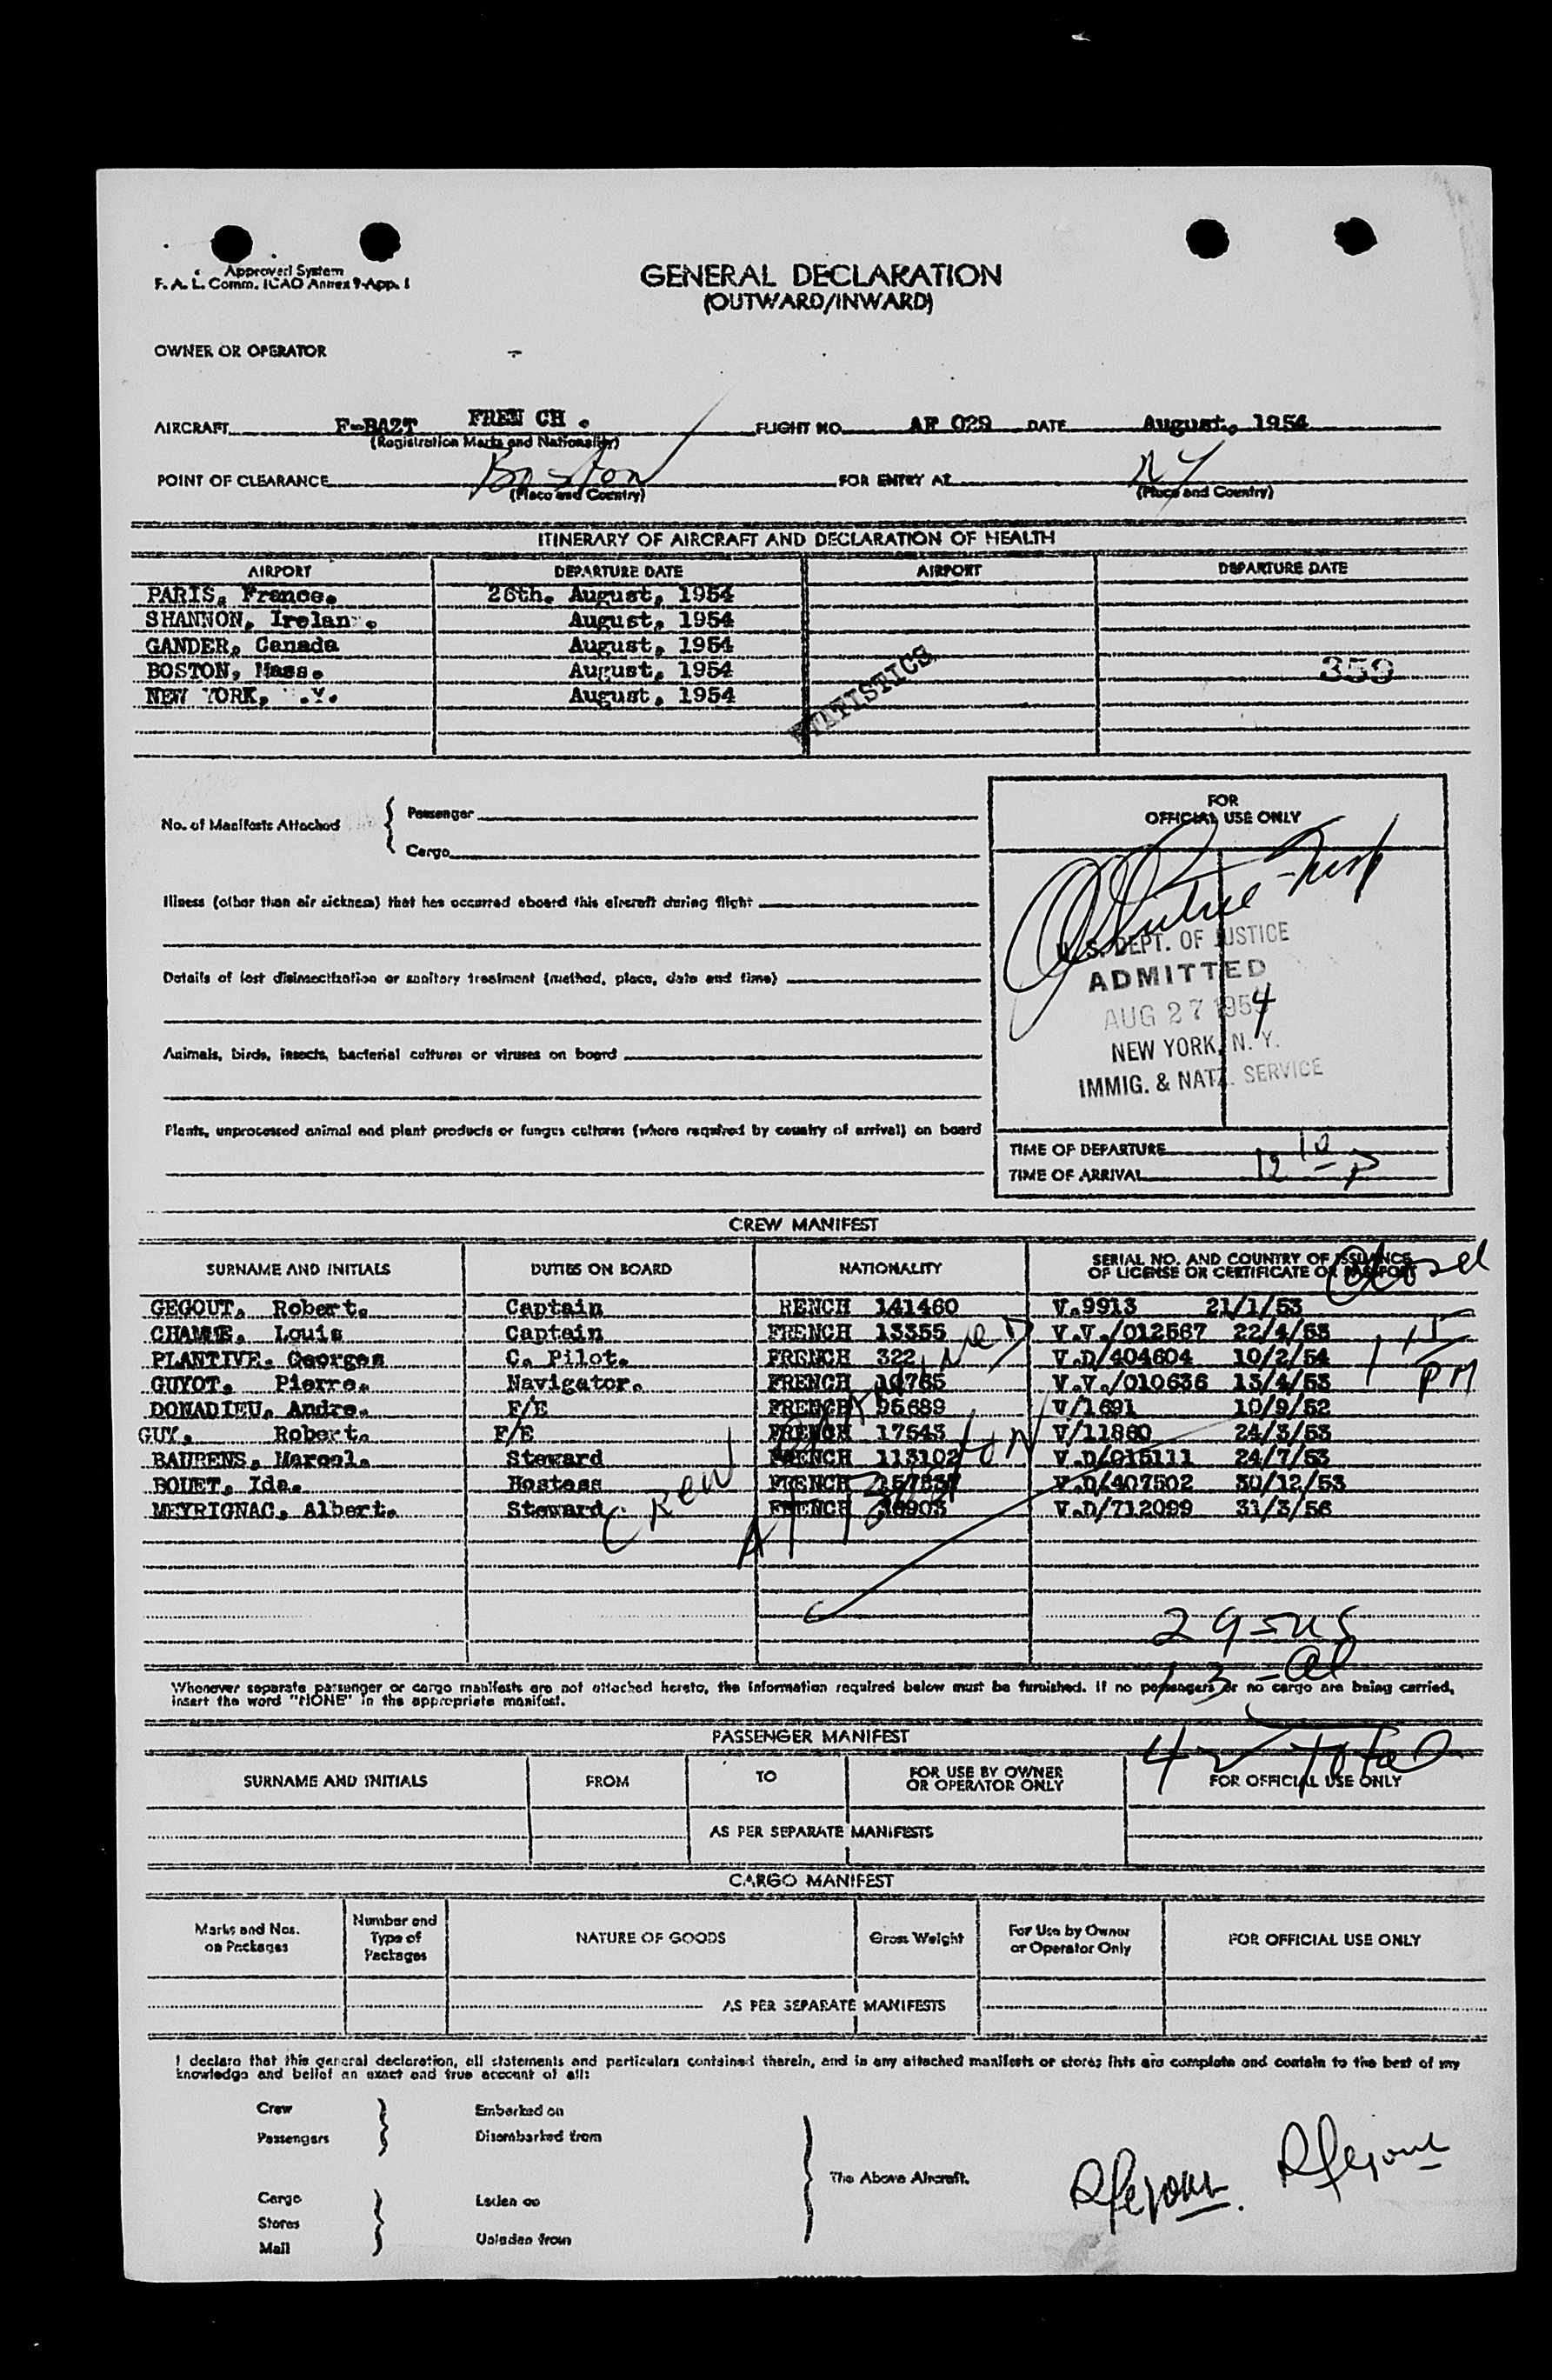 Approved System
F. A. L. Comm. ICAO Annex 9-App. 1
GENERAL DECLARATION
(OUTWARD/INWARD)
OWNER OR OPERATOR
AIRCRAFT F-BAZT FREN CH . FLIGHT NO. AF 029 DATE August, 1954
(Registration Marks and Nationality)
POINT OF CLEARANCE Boston FOR ENTRY AT NY
(Place and Country) (Place and Country)
ITINERARY OF AIRCRAFT AND DECLARATION OF HEALTH
AIRPORT DEPARTURE DATE AIRPORT DEPARTURE DATE
PARIS, France. 26th. August, 1954
SHANNON, Irelan . August, 1954
GANDER, Canada August, 1954
BOSTON, Mass. August, 1954 359
NEW YORK, .Y. August, 1954
STATISTICS
FOR
OFFICIAL USE ONLY
No. of Manifests Attached
Passenger
Cargo
Illness (other than air sickness) that has occurred aboard this aircraft during flight
U. S. DEPT. OF JUSTICE
ADMITTED
AUG 27 1954
NEW YORK, N. Y.
IMMIG. & NATZ. SERVICE
Details of last disinsectization or sanitary treatment (method, place, date and time)
Animals, birds, insects, bacterial cultures or viruses on board
Plants, unprocessed animal and plant products or fungus cultures (where required by country of arrival) on board
TIME OF DEPARTURE
TIME OF ARRIVAL 12 10 P
CREW MANIFEST
SURNAME AND INITIALS DUTIES ON BOARD NATIONALITY SERIAL NO. AND COUNTRY OF ISSUANCE
OF LICENSE OR CERTIFICATE OR PASSPORT
Closed
GEGOUT, Robert. Captain RENCH 141460 V.9913 21/1/53
Louis Captain FRENCH 13355 V.V./012567 22/4/53
PLANTIVE. Georges C. Pilot. FRENCH 322 V.D/404604 10/2/54
GUYOT, Pierre. Navigator. FRENCH 10765 V.V./010636 13/4/53
PM
DONADIEU, Andre. F/E FRENCH 95689 V/1691 10/9/52
GUY, Robert. F/E FRENCH 17543 V/11860 24/3/53
BAURENS, Marcel. Steward FRENCH 113102 V.D/015111 24/7/53
BOUET, Ida. Hostess FRENCH V.D/407502 30/12/53
MEYRIGNAC, Albert. Steward FRENCH V.D/712099 31/3/56
CREW
AT
29 - US
13 - al
42 Total
Whenever separate passenger or cargo manifests are not attached hereto, the information required below must be furnished. If no passengers or no cargo are being carried,
insert the word "NONE" in the appropriate manifest.
PASSENGER MANIFEST
SURNAME AND INITIALS FROM TO FOR USE BY OWNER
OR OPERATOR ONLY FOR OFFICIAL USE ONLY
AS PER SEPARATE MANIFESTS
CARGO MANIFEST
Marks and Nos.
on Packages
Number and
Type of
Packages
NATURE OF GOODS Gross Weight
For Use by Owner
or Operator Only
FOR OFFICIAL USE ONLY
AS PER SEPARATE MANIFESTS
I declare that this general declaration, all statements and particulars contained therein, and in any attached manifests or stores lists are complete and contain to the best of my
knowledge and belief an exact and true account of all:
Crew Embarked on
Passengers Disembarked from
The Above Aircraft.
Cargo Laden on
Stores
Mail Unladen from